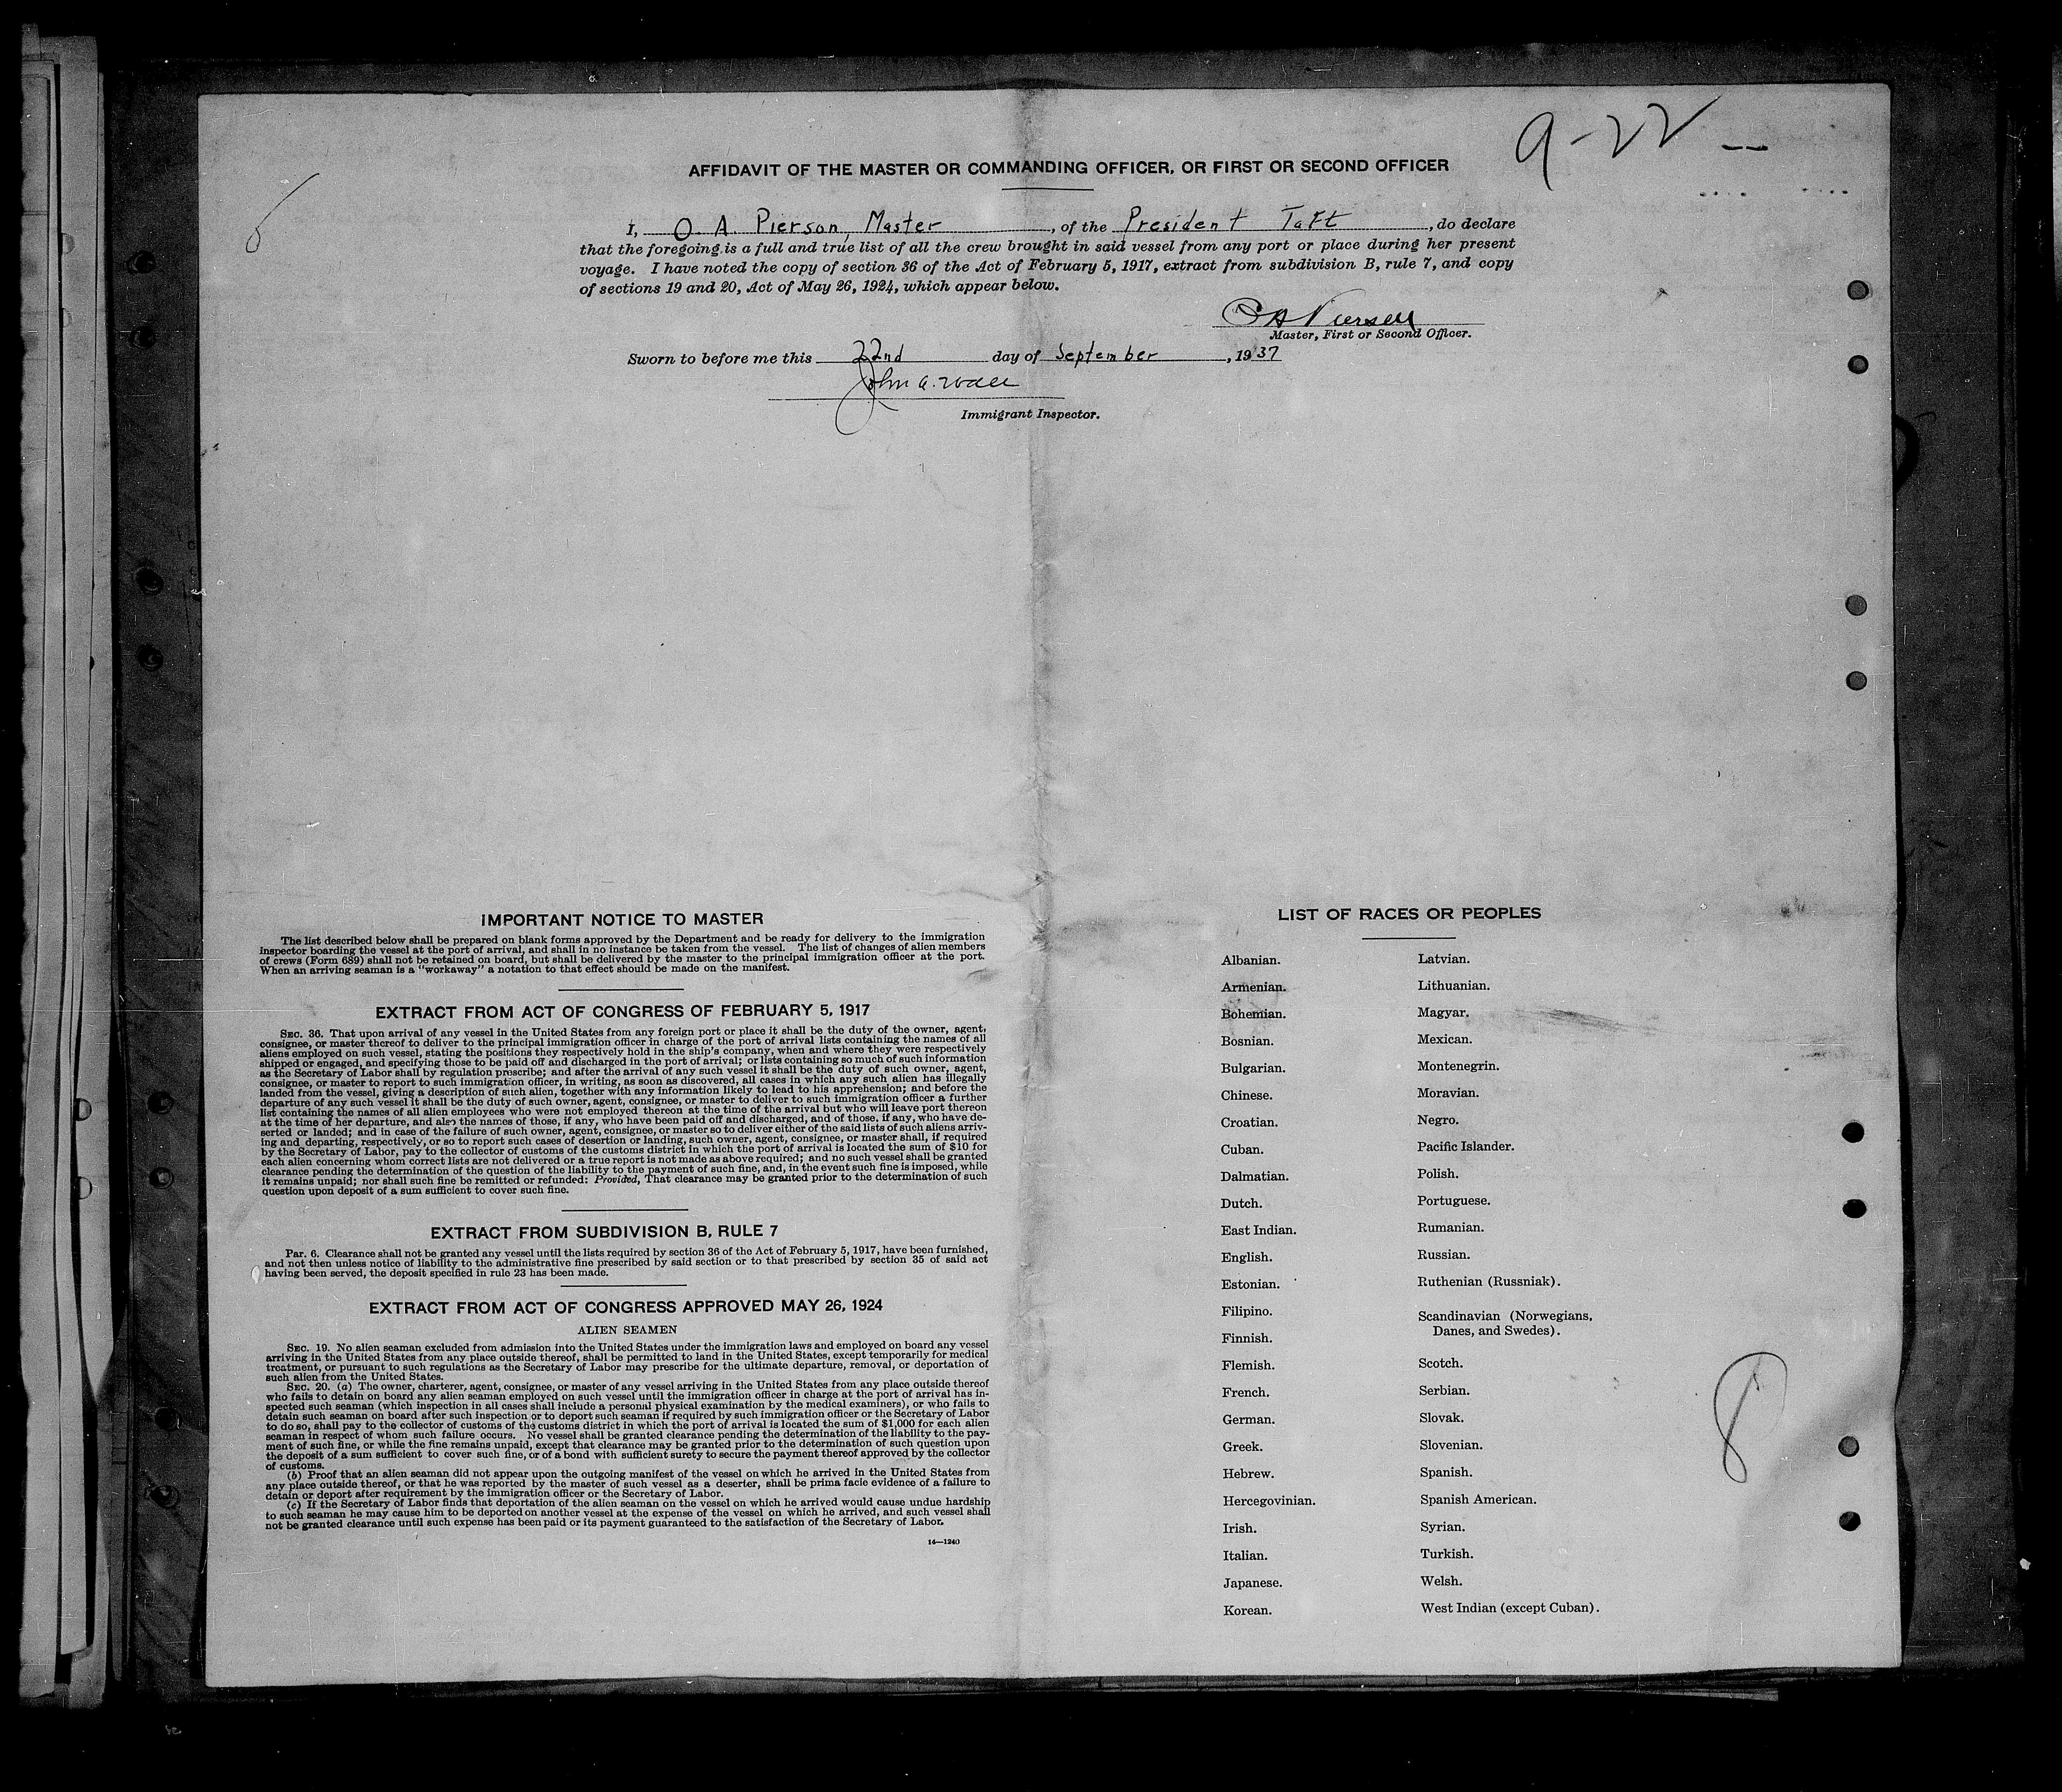 9-22 --
AFFIDAVIT OF THE MASTER OR COMMANDING OFFICER, OR FIRST OR SECOND OFFICER
I, O. A. Pierson, Master, of the President Taft, do declare
that the foregoing is a full and true list of all the crew brought in said vessel from any port or place during her present
voyage. I have noted the copy of section 36 of the Act of February 5, 1917, extract from subdivision B, rule 7, and copy
of sections 19 and 20, Act of May 26, 1924, which appear below.
O A Pierson
Master, First or Second Officer.
Sworn to before me this 22nd day of September, 1937
John A.
Immigrant Inspector.
IMPORTANT NOTICE TO MASTER
The list described below shall be prepared on blank forms approved by the Department and be ready for delivery to the immigration
inspector boarding the vessel at the port of arrival, and shall in no instance be taken from the vessel. The list of changes of alien members
of crews (Form 689) shall not be retained on board, but shall be delivered by the master to the principal immigration officer at the port.
When an arriving seaman is a "workaway" a notation to that effect should be made on the manifest.
EXTRACT FROM ACT OF CONGRESS OF FEBRUARY 5, 1917
SEC. 36. That upon arrival of any vessel in the United States from any foreign port or place it shall be the duty of the owner, agent,
consignee, or master thereof to deliver to the principal immigration officer in charge of the port of arrival lists containing the names of all
aliens employed on such vessel, stating the positions they respectively hold in the ship's company, when and where they were respectively
shipped or engaged, and specifying those to be paid off and discharged in the port of arrival; or lists containing so much of such information
as the Secretary of Labor shall by regulation prescribe; and after the arrival of any such vessel it shall be the duty of such owner, agent,
consignee, or master to report to such immigration officer, in writing, as soon as discovered, all cases in which any such alien has illegally
landed from the vessel, giving a description of such alien, together with any information likely to lead to his apprehension; and before the
departure of any such vessel it shall be the duty of such owner, agent, consignee, or master to deliver to such immigration officer a further
list containing the names of all alien employees who were not employed thereon at the time of the arrival but who will leave port thereon
at the time of her departure, and also the names of those, if any, who have been paid off and discharged, and of those, if any, who have de-
serted or landed; and in case of the failure of such owner, agent, consignee, or master so to deliver either of the said lists of such aliens arriv-
ing and departing, respectively, or so to report such cases of desertion or landing, such owner, agent, consignee, or master shall, if required
by the Secretary of Labor, pay to the collector of customs of the customs district in which the port of arrival is located the sum of $10 for
each alien concerning whom correct lists are not delivered or a true report is not made as above required; and no such vessel shall be granted
clearance pending the determination of the question of the liability to the payment of such fine, and, in the event such fine is imposed, while
it remains unpaid; nor shall such fine be remitted or refunded: Provided, That clearance may be granted prior to the determination of such
question upon deposit of a sum sufficient to cover such fine.
EXTRACT FROM SUBDIVISION B, RULE 7
Par. 6. Clearance shall not be granted any vessel until the lists required by section 36 of the Act of February 5, 1917, have been furnished,
and not then unless notice of liability to the administrative fine prescribed by said section or to that prescribed by section 35 of said act
having been served, the deposit specified in rule 23 has been made.
EXTRACT FROM ACT OF CONGRESS APPROVED MAY 26, 1924
ALIEN SEAMEN
SEC. 19. No alien seaman excluded from admission into the United States under the immigration laws and employed on board any vessel
arriving in the United States from any place outside thereof, shall be permitted to land in the United States, except temporarily for medical
treatment, or pursuant to such regulations as the Secretary of Labor may prescribe for the ultimate departure, removal, or deportation of
such alien from the United States.
SEC. 20. (a) The owner, charterer, agent, consignee, or master of any vessel arriving in the United States from any place outside thereof
who fails to detain on board any alien seaman employed on such vessel until the immigration officer in charge at the port of arrival has in-
spected such seaman (which inspection in all cases shall include a personal physical examination by the medical examiners), or who fails to
detain such seaman on board after such inspection or to deport such seaman if required by such immigration officer or the Secretary of Labor
to do so, shall pay to the collector of customs of the customs district in which the port of arrival is located the sum of $1,000 for each alien
seaman in respect of whom such failure occurs. No vessel shall be granted clearance pending the determination of the liability to the pay-
ment of such fine, or while the fine remains unpaid, except that clearance may be granted prior to the determination of such question upon
the deposit of a sum sufficient to cover such fine, or of a bond with sufficient surety to secure the payment thereof approved by the collector
of customs.
(b) Proof that an alien seaman did not appear upon the outgoing manifest of the vessel on which he arrived in the United States from
any place outside thereof, or that he was reported by the master of such vessel as a deserter, shall be prima facie evidence of a failure to
detain or deport after requirement by the immigration officer or the Secretary of Labor.
(c) If the Secretary of Labor finds that deportation of the alien seaman on the vessel on which he arrived would cause undue hardship
to such seaman he may cause him to be deported on another vessel at the expense of the vessel on which he arrived, and such vessel shall
not be granted clearance until such expense has been paid or its payment guaranteed to the satisfaction of the Secretary of Labor.
14—1240
LIST OF RACES OR PEOPLES
Albanian.
Armenian.
Bohemian.
Bosnian.
Bulgarian.
Chinese.
Croatian.
Cuban.
Dalmatian.
Dutch.
East Indian.
English.
Estonian.
Filipino.
Finnish.
Flemish.
French.
German.
Greek.
Hebrew.
Hercegovinian.
Irish.
Italian.
Japanese.
Korean.
Latvian.
Lithuanian.
Magyar.
Mexican.
Montenegrin.
Moravian.
Negro.
Pacific Islander.
Polish.
Portuguese.
Rumanian.
Russian.
Ruthenian (Russniak).
Scandinavian (Norwegians,
Danes, and Swedes).
Scotch.
Serbian.
Slovak.
Slovenian.
Spanish.
Spanish American.
Syrian.
Turkish.
Welsh.
West Indian (except Cuban).